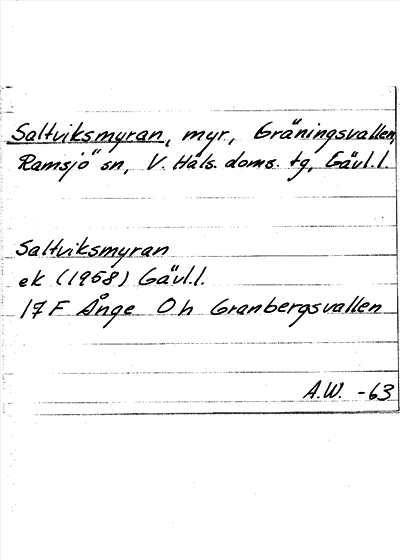 Saltviksmyran, myr, Gräningsvallen,
Ramsjö sn, V. Häls. doms. tg, Gävl.l.
Saltviksmyran
ek (1958) Gävl.l.
17 F Ånge Oh Granbergsvallen
A.W. -63